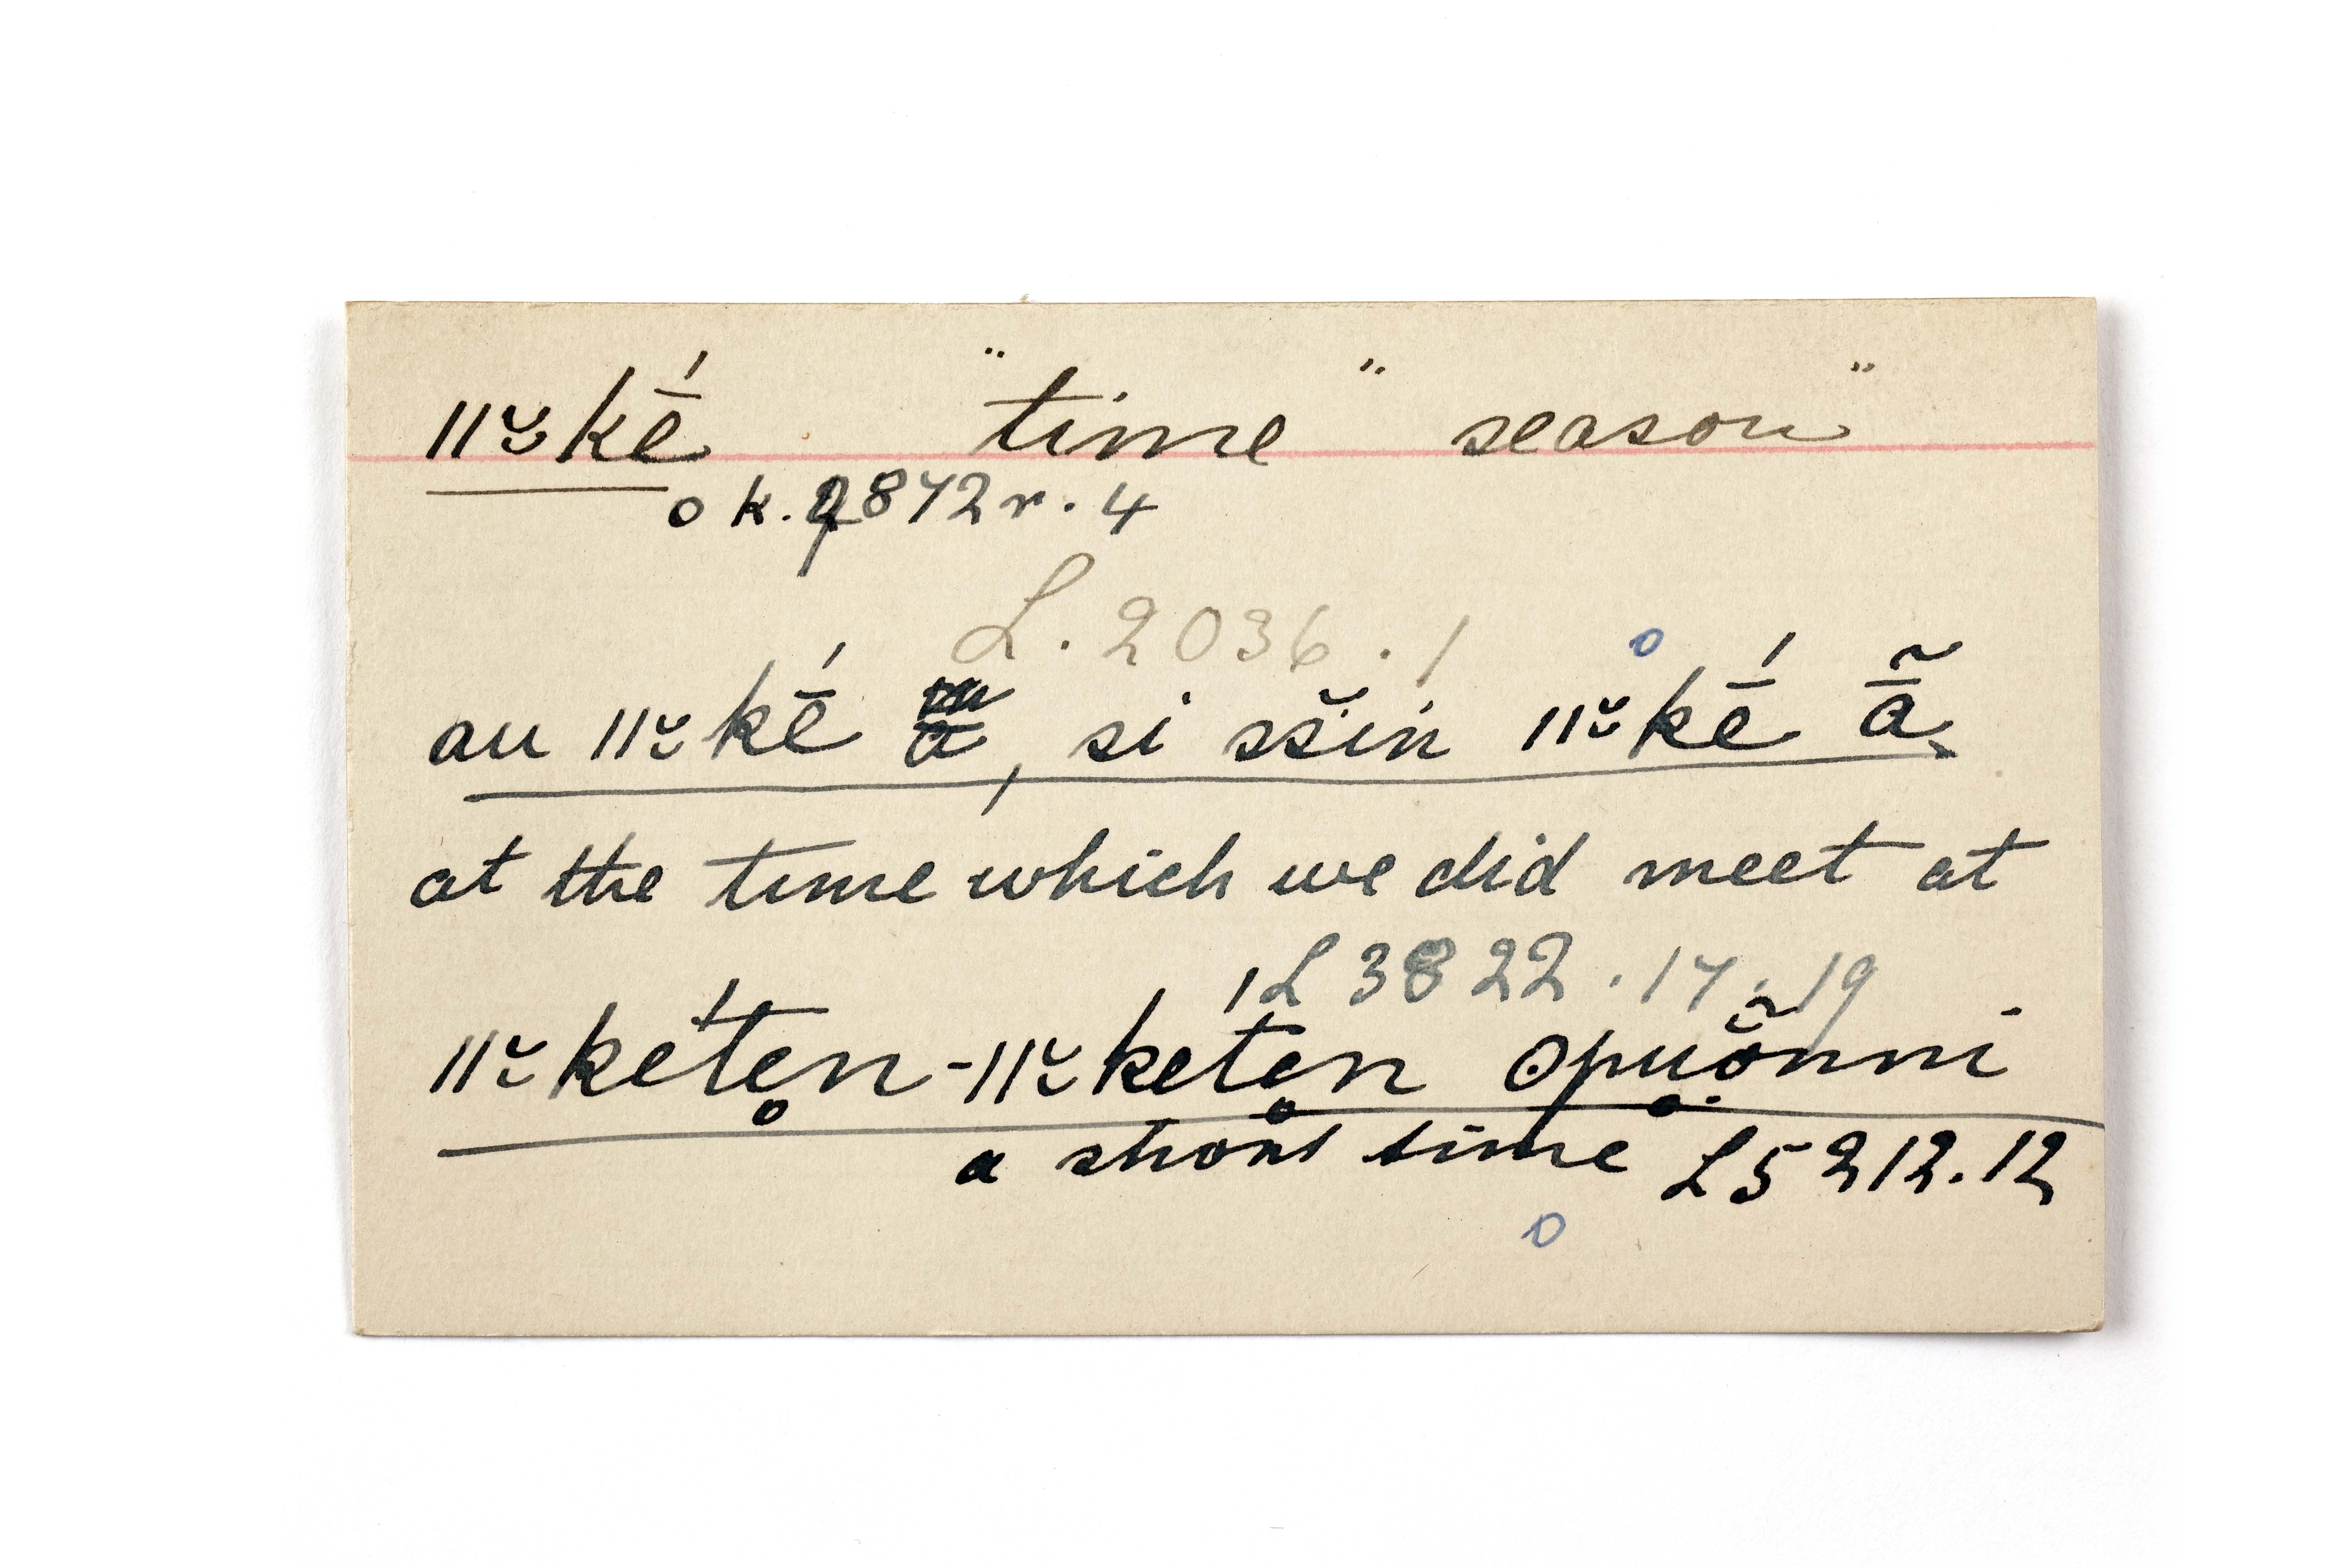 ǁ˘kḗ "time" "season"
o k. 9872 r. 4
L. 2036.1
au ǁ˘kḗ ā, si ššin ǁ˘kḗ ā̃
at the time which we did meet at
L 3822.17.19
ǁ˘kéten-ǁ˘keten opuonni
a short time L5 212.12